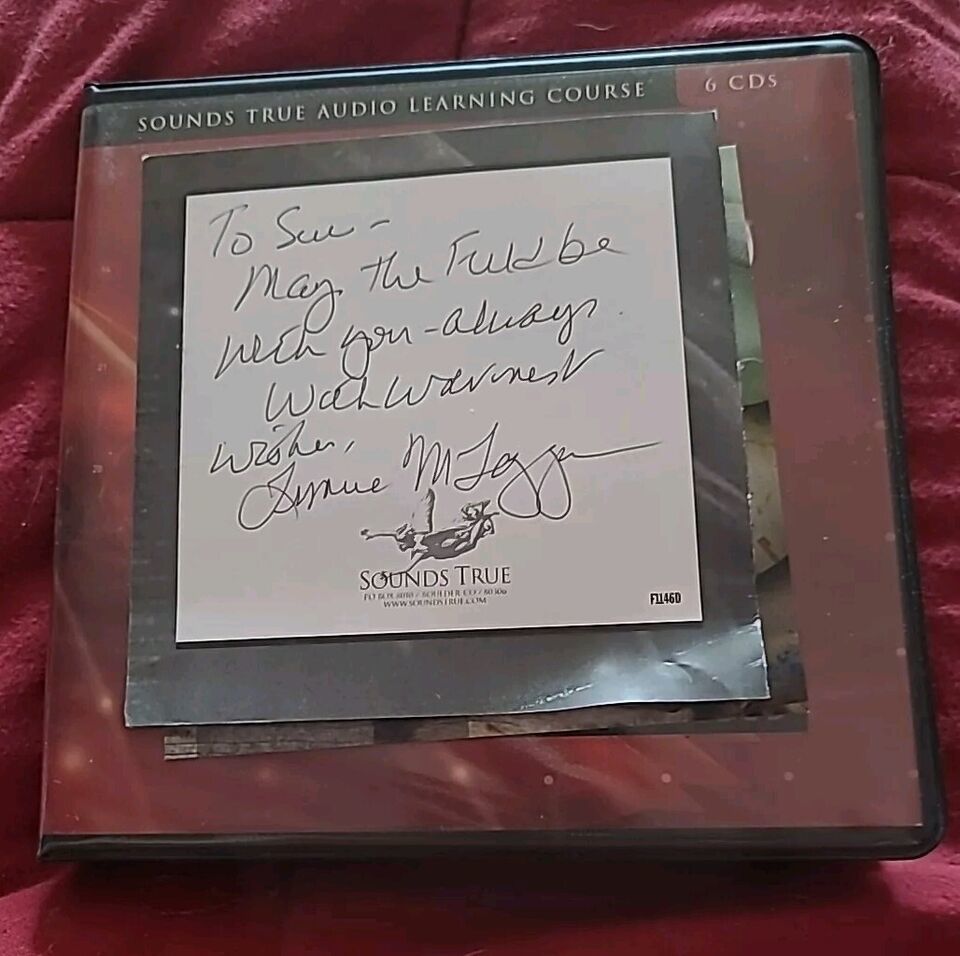 SOUNDS TRUE AUDIO LEARNING COURSE
6 CDs
To Sue -
May the Field be
with you - always.
With warmest
wishes,
Lynne McTaggart
SOUNDS TRUE
PO BOX 8010 / BOULDER CO / 80306
WWW.SOUNDSTRUE.COM
F1146D